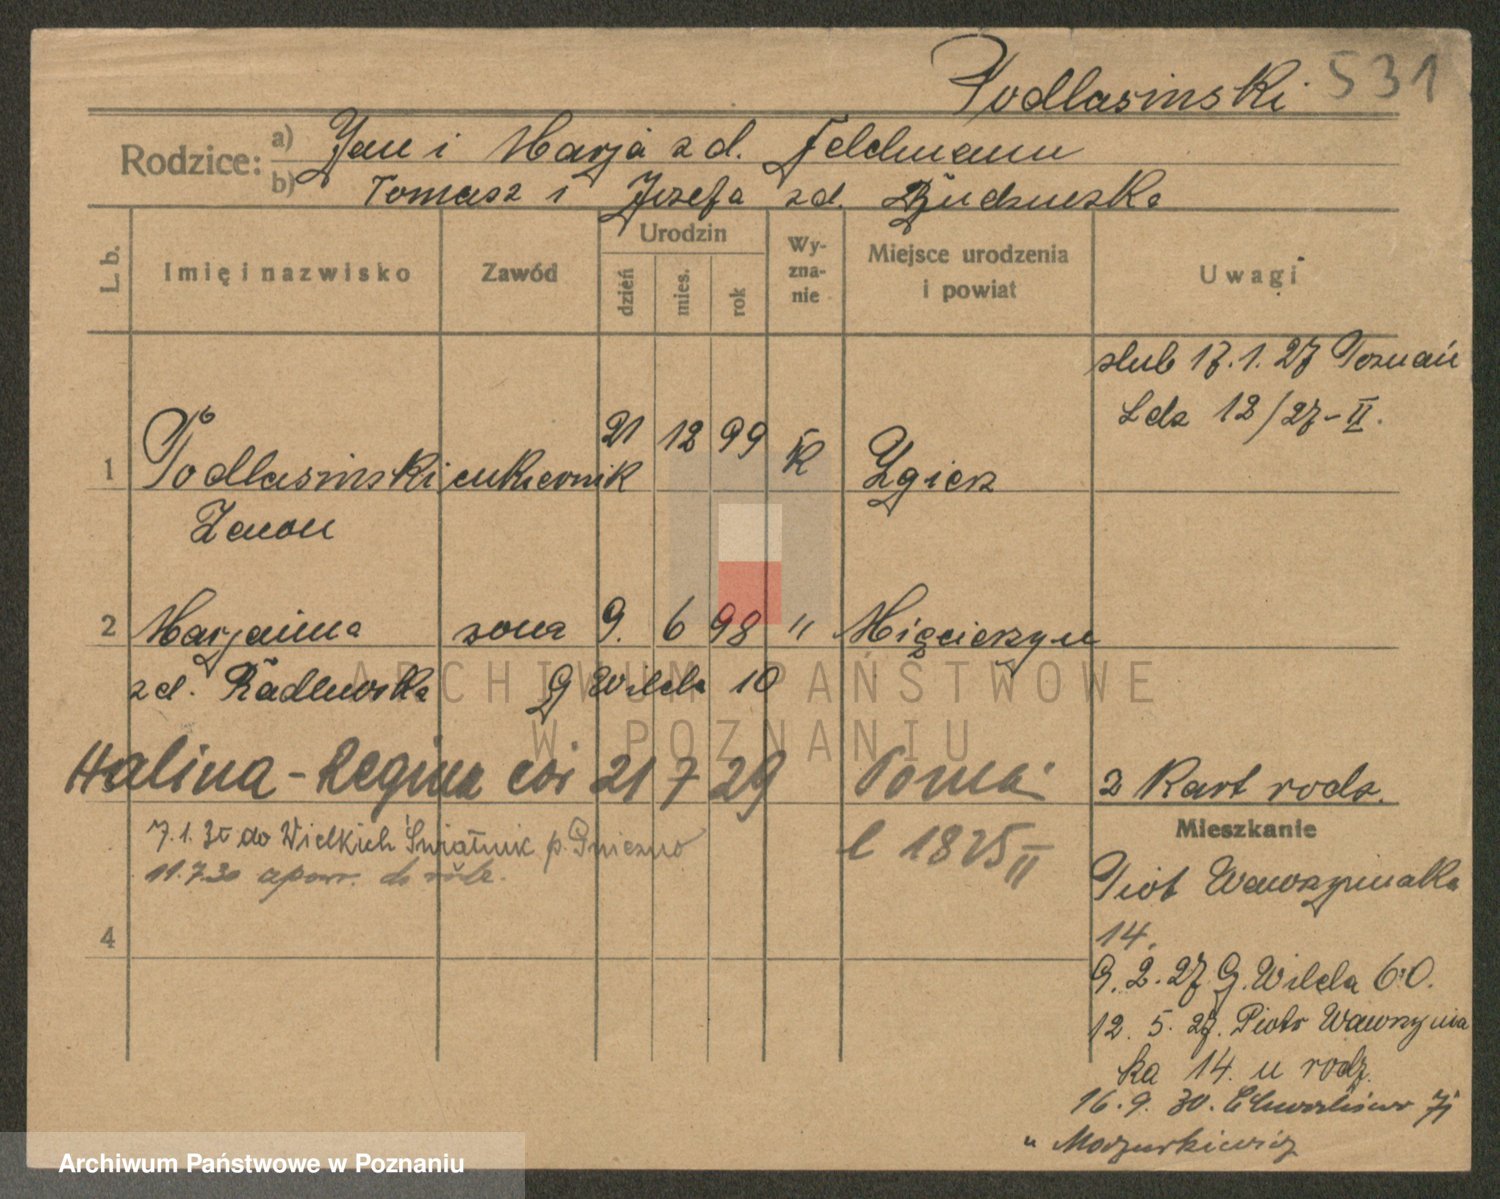 Podlasinski 531
Rodzice: a) Jan i Marja zd. Feldmann
b) Tomasz i Józefa zd.
L. b. Imię i nazwisko Zawód Urodzin dzień mies. rok Wy-zna-nie Miejsce urodzenia i powiat Uwagi
slub 17.1.27 Poznań
Lda 12/27-II.
1 Podlasinski cukiernik 21 12 99 k Zgierz
Zenon
2 Marjanna zona 9. 6 98 " Mięcierzyn
zd. Radlewska G Wilda 10
Halina-Regina 21 7 29 Poznań
2 Kart rodz.
l 1825 II
7.1. do Wielkich Swiątnik p. Gniezno
11.7.30 do
4
Mieszkanie
Piot Wawrzyniaka
14.
9.2.27 G. Wilda 60.
12. 5. 27. Piotr Wawrzynia
ka 14. u rodz.
16.9.30.
u Mazurkiewicz
ARCHIWUM PAŃSTWOWE
W POZNANIU
Archiwum Państwowe w Poznaniu